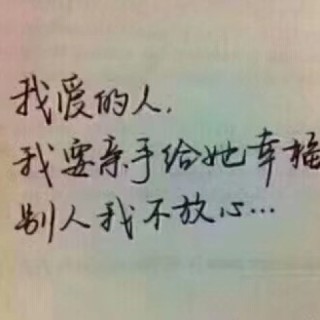 我爱的人.
我要亲手给她幸福
别人我不放心…